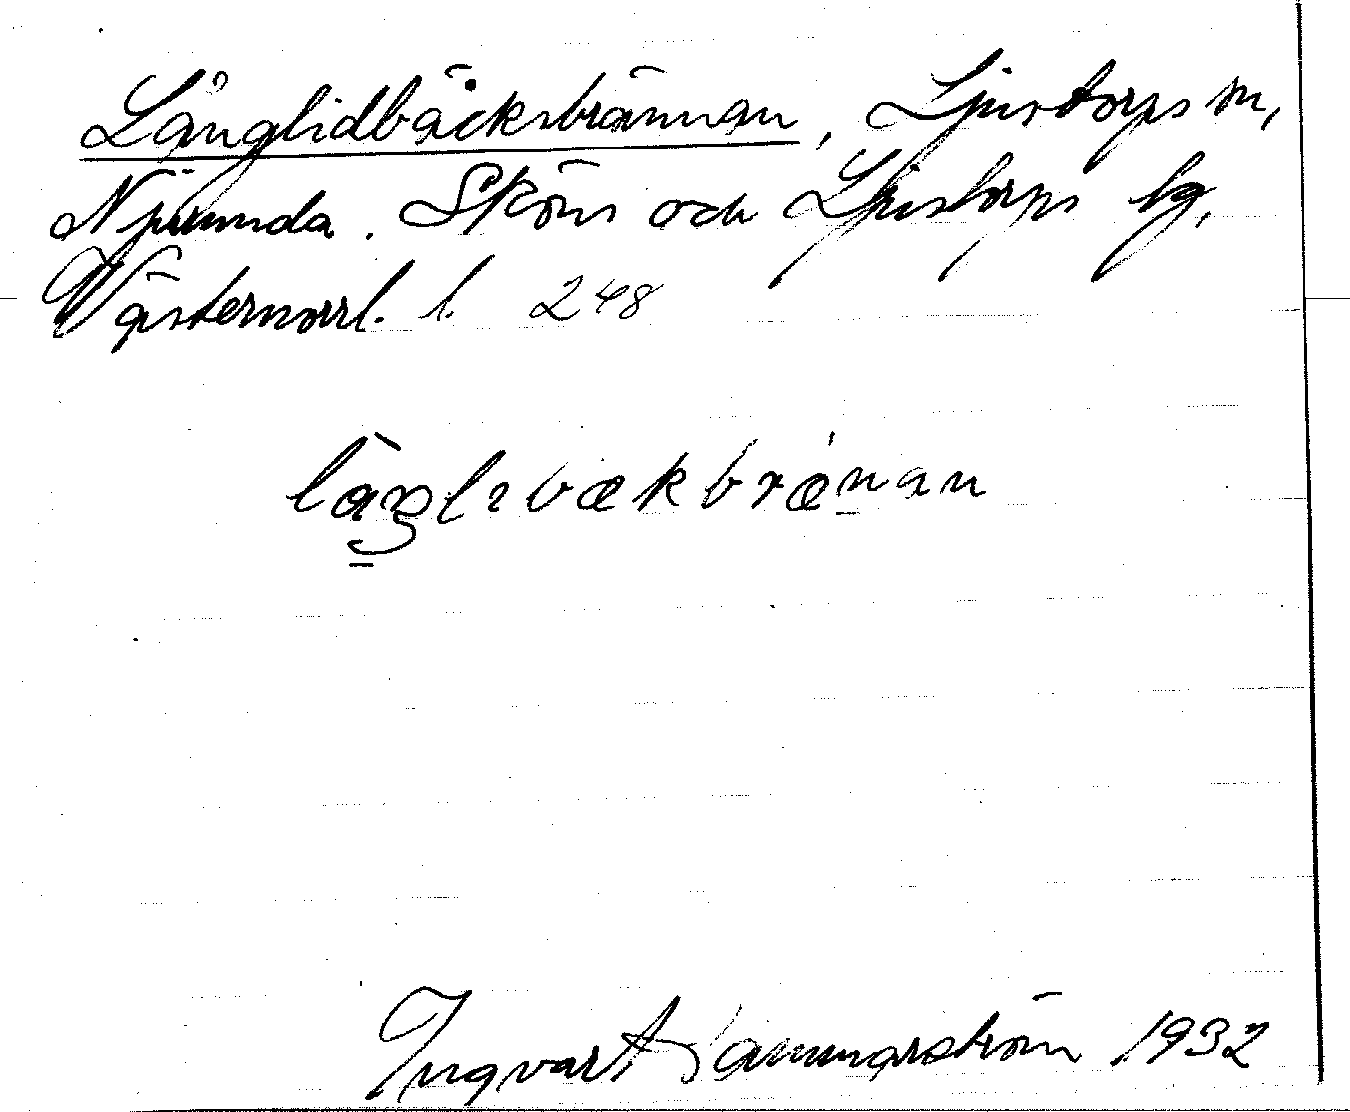 Långlidbäcksbrännan, Ljustorps sn,
Njurunda, Sköns och Ljustorps tg,
Västernorrl. l. 248
låŋlɩbækbrænan
Ingvar Hammarström 1932